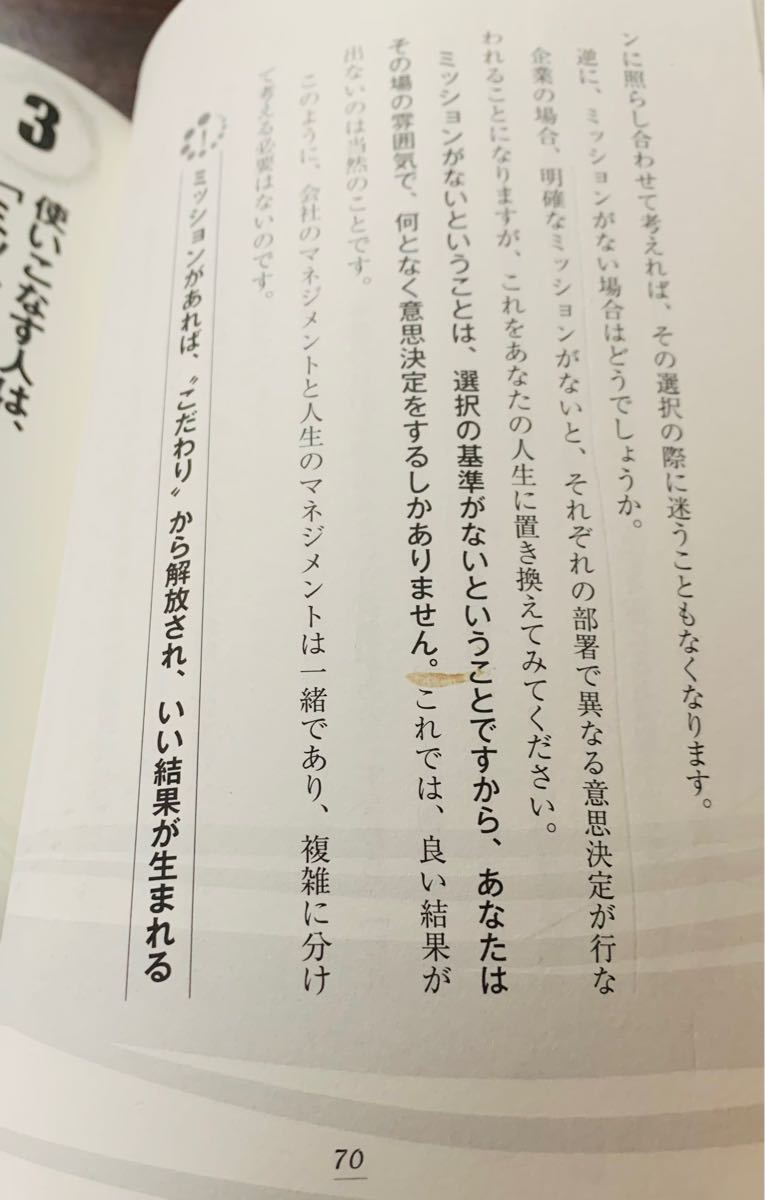 ンに照らし合わせて考えれば、その選択の際に迷うこともなくなります。
逆に、ミッションがない場合はどうでしょうか。
企業の場合、明確なミッションがないと、それぞれの部署で異なる意思決定が行な
われることになりますが、これをあなたの人生に置き換えてみてください。
ミッションがないということは、選択の基準がないということですから、あなたは
その場の雰囲気で、何となく意思決定をするしかありません。これでは、良い結果が
出ないのは当然のことです。
このように、会社のマネジメントと人生のマネジメントは一緒であり、複雑に分け
て考える必要はないのです。
ミッションがあれば、〝こだわり〟から解放され、いい結果が生まれる
70
3
使いこなす人は、